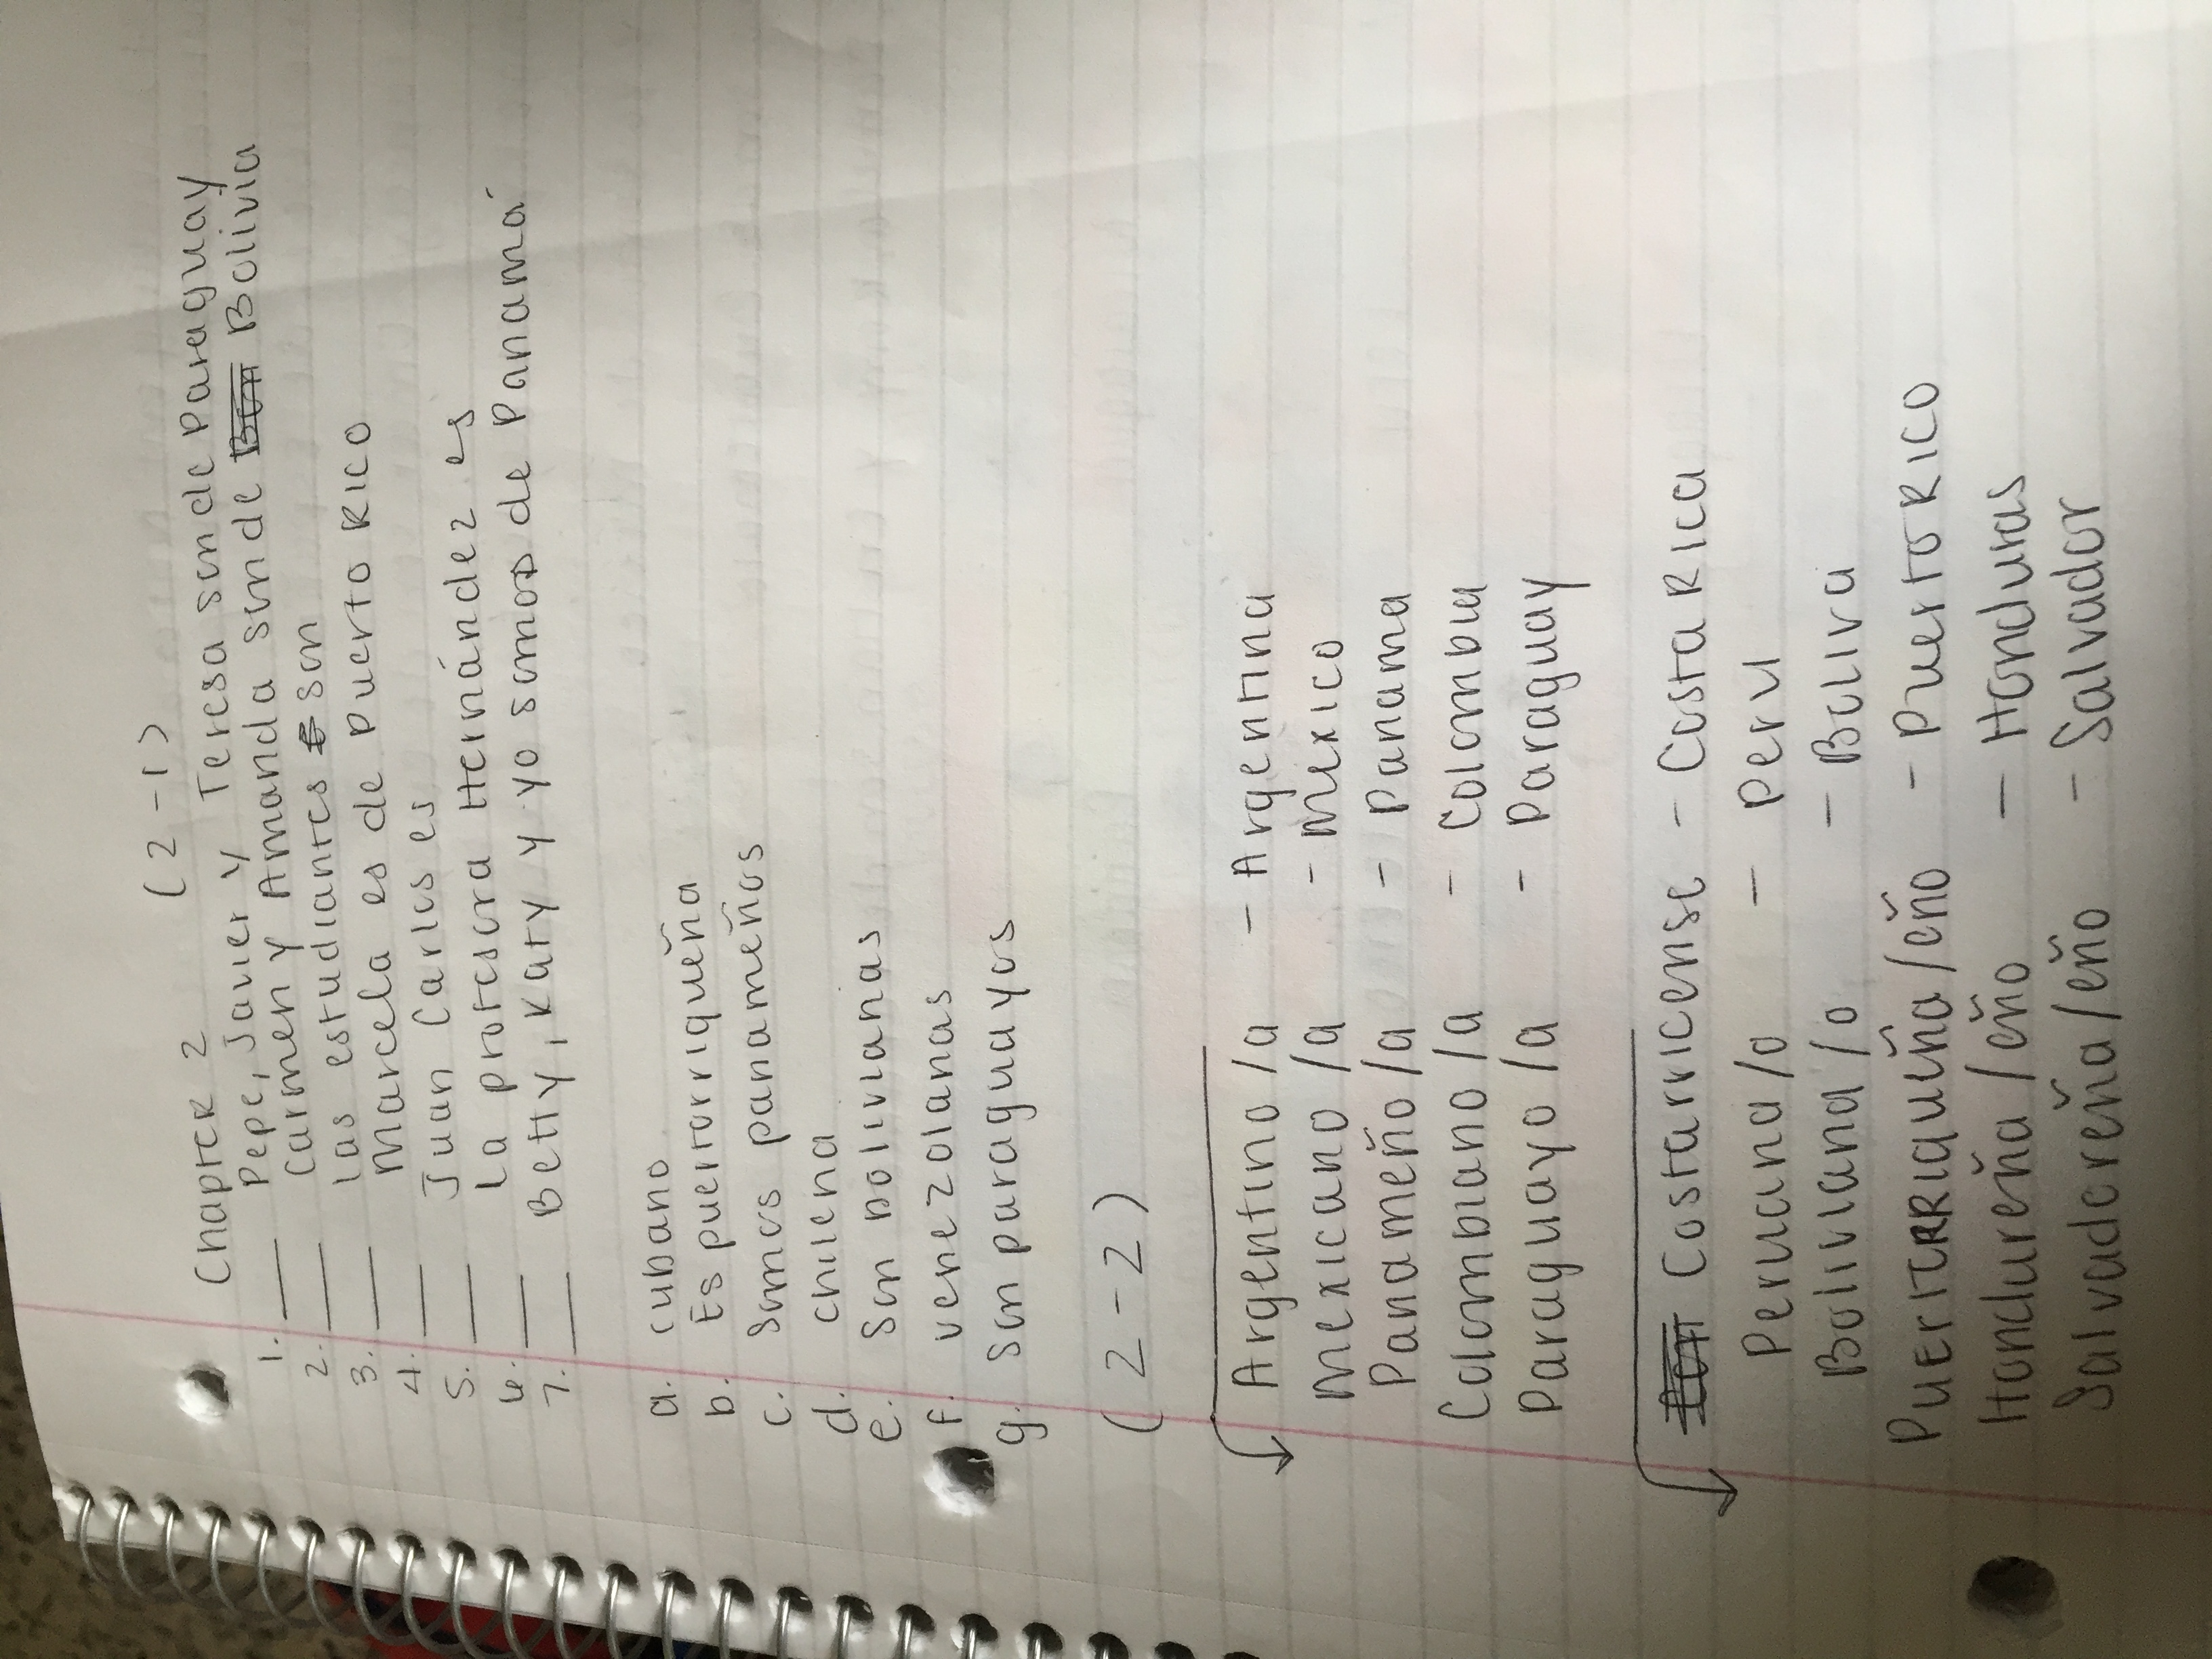 Chapter 2 (2-1)
1. ___ Pepe, Javier y Teresa son de Paraguay
2. ___ Carmen y Amanda son de Bolivia
3. ___ las estudiantes son
4. ___ Marcela es de Puerto Rico
5. ___ Juan Carlos es
6. ___ La profesora Hernández es
7. ___ Betty, Katy y yo somos de Panamá
a. cubano
b. Es puertorriqueña
c. Somos panameños
d. chilena
e. Son bolivianas
f. venezolanas
g. Son paraguayos
(2-2)
Argentino/a - Argentina
Mexicano/a - Mexico
Panameño/a - Panama
Colombiano/a - Colombia
Paraguayo/a - Paraguay
Costarricense - Costa Rica
Peruana/o - Peru
Boliviana/o - Boliva
Puertorriqueña/eño - Puerto Rico
Hondureña/eño - Honduras
Salvadoreña/eño - Salvador